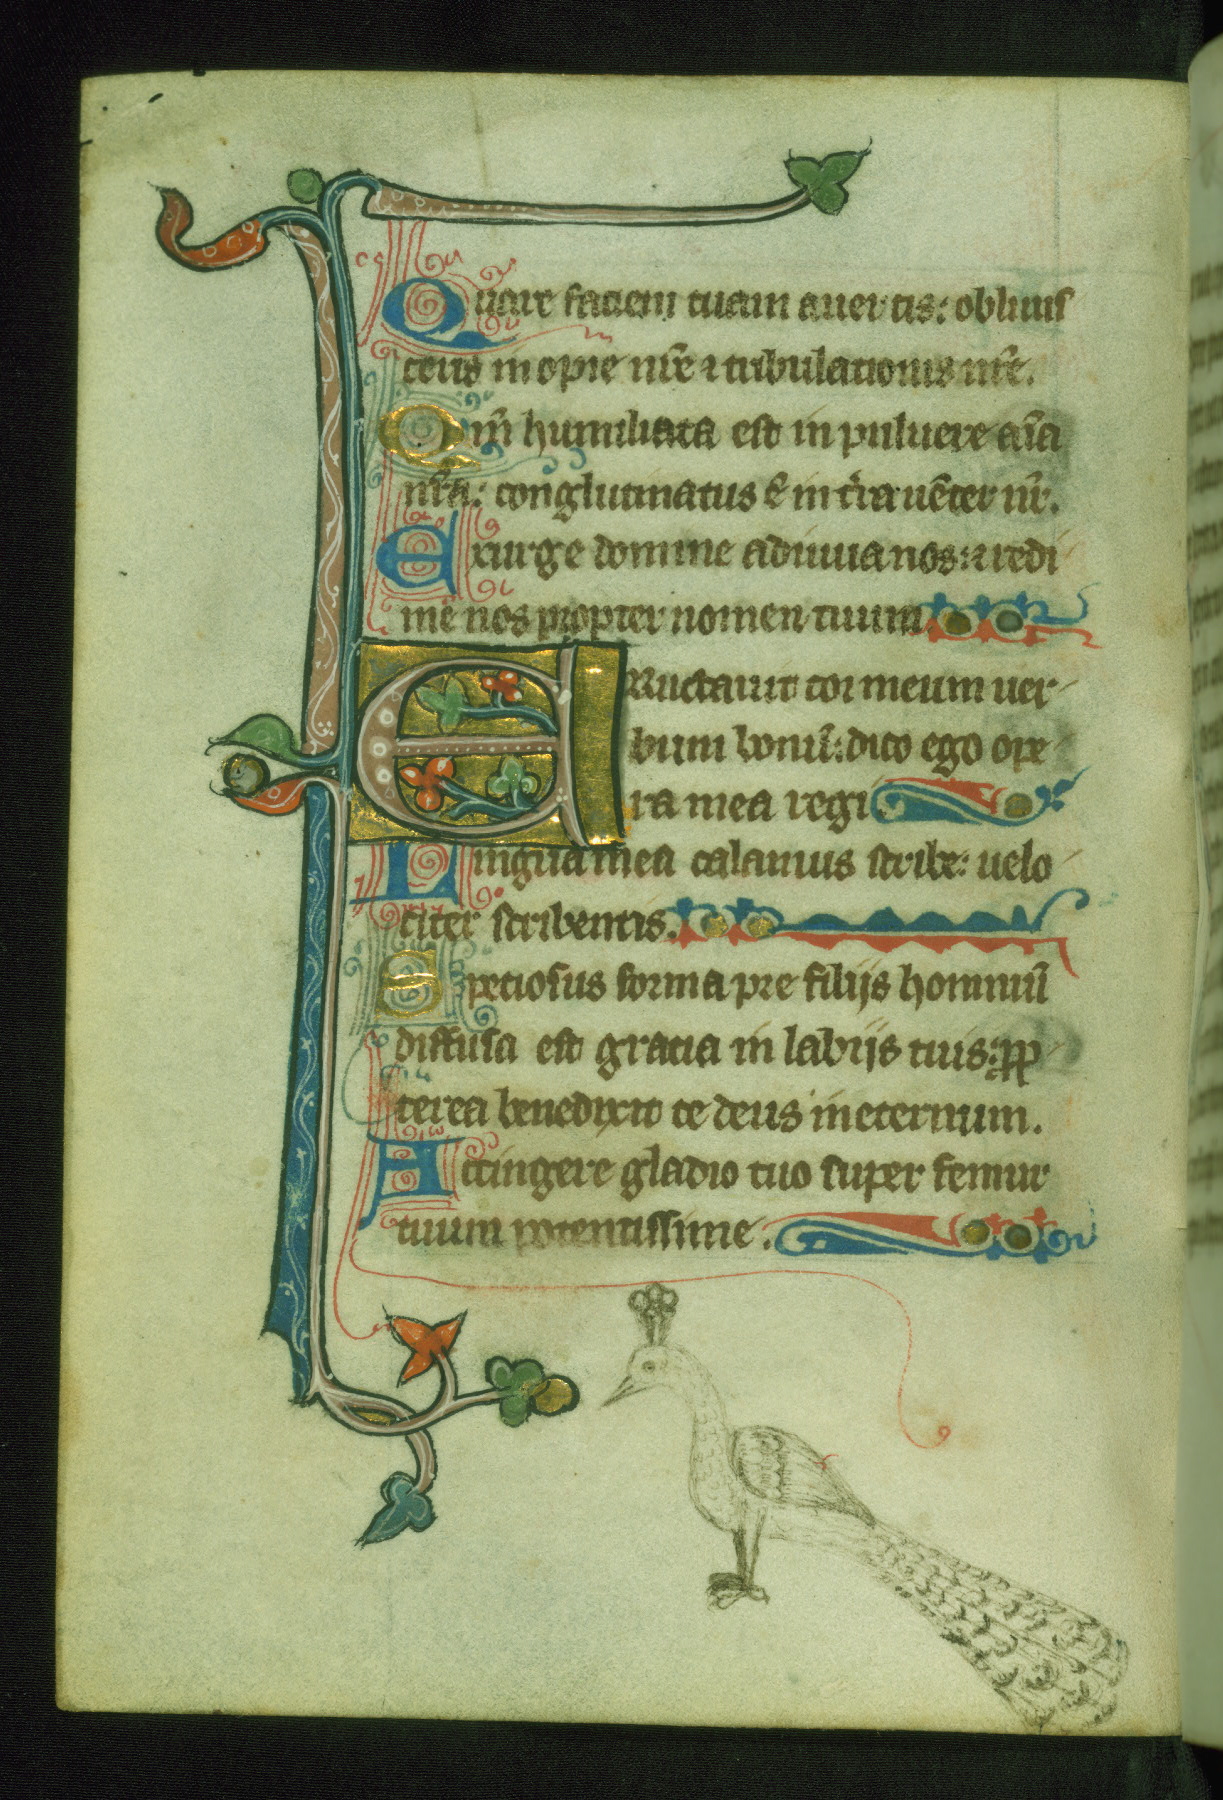 Quare faciem tuam auertis: obliuis
ceris inopie nr̄e ⁊ tribulationis nr̄e.
Qm̄ humiliata est in puluere aīa
nr̄a: conglutinatus ē in tr̄a uēter nr̄.
Exurge domine adiuua nos: ⁊ redi
me nos propter nomen tuum
ERuctauit cor meum uer
bum bonū: dico ego ope
ra mea regi
Lingua mea calamus scribe: uelo
citer scribentis.
Speciosus forma pre filijs hominū
diffusa est gratia in labijs tuis: ꝓp
terea benedixit te deus in eternum.
Accingere gladio tuo super femur
tuum potentissime.